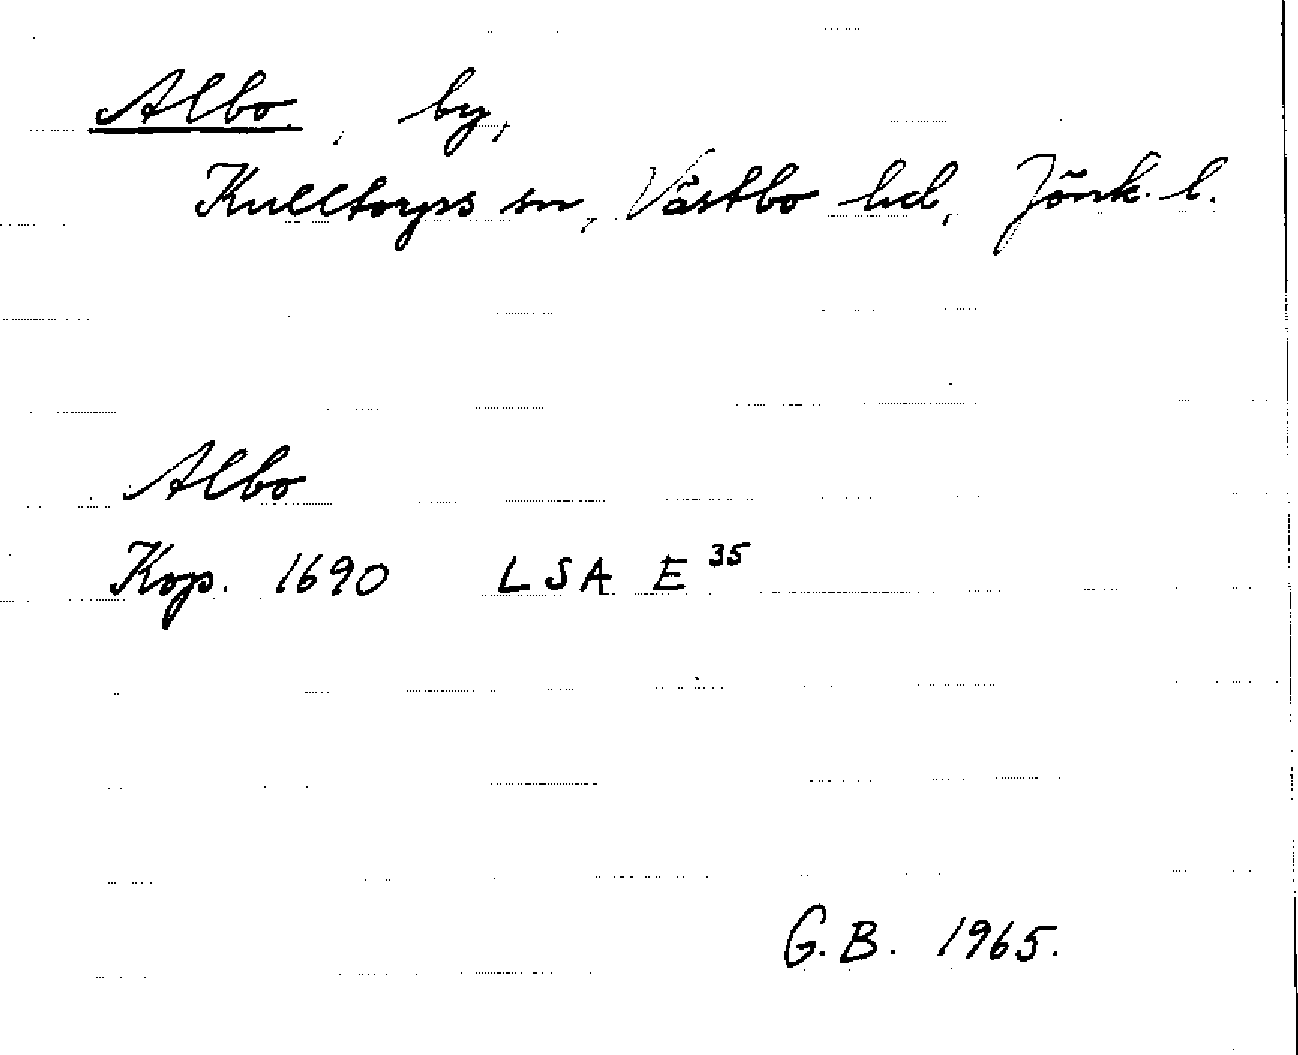 Albo, by,
Kulltorps sn, Västbo hd, Jönk. l.
Albo
Kop. 1690 LSA E 35
G.B. 1965.